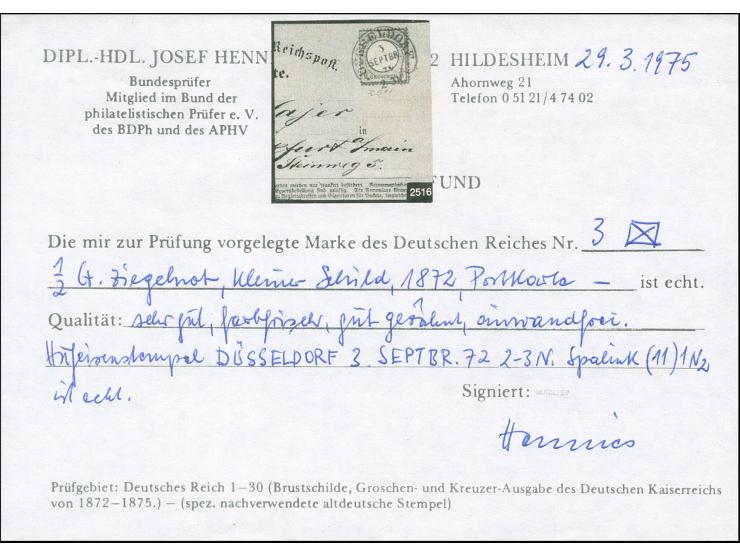 DIPL.-HDL. JOSEF HENN
2 HILDESHEIM 29.3.1975
Bundesprüfer
Mitglied im Bund der
philatelistischen Prüfer e. V.
des BDPh und des APHV
Ahornweg 21
Telefon 0 51 21/4 74 02
Reichspost.
te.
SEPTBR
in
a/main
Steinweg 5.
2516
FUND
Die mir zur Prüfung vorgelegte Marke des Deutschen Reiches Nr. 3
1/2 Gr. ziegelrot, kleiner Schild, 1872, Postkarte — ist echt.
Qualität: sehr gut, farbfrisch, gut gezähnt, einwandfrei.
Hufeisenstempel DÜSSELDORF 3. SEPTBR. 72 2-3 N. Spalink (11) 1 N2
ist echt.
Signiert:
Hennies
Prüfgebiet: Deutsches Reich 1—30 (Brustschilde, Groschen- und Kreuzer-Ausgabe des Deutschen Kaiserreichs
von 1872—1875.) — (spez. nachverwendete altdeutsche Stempel)